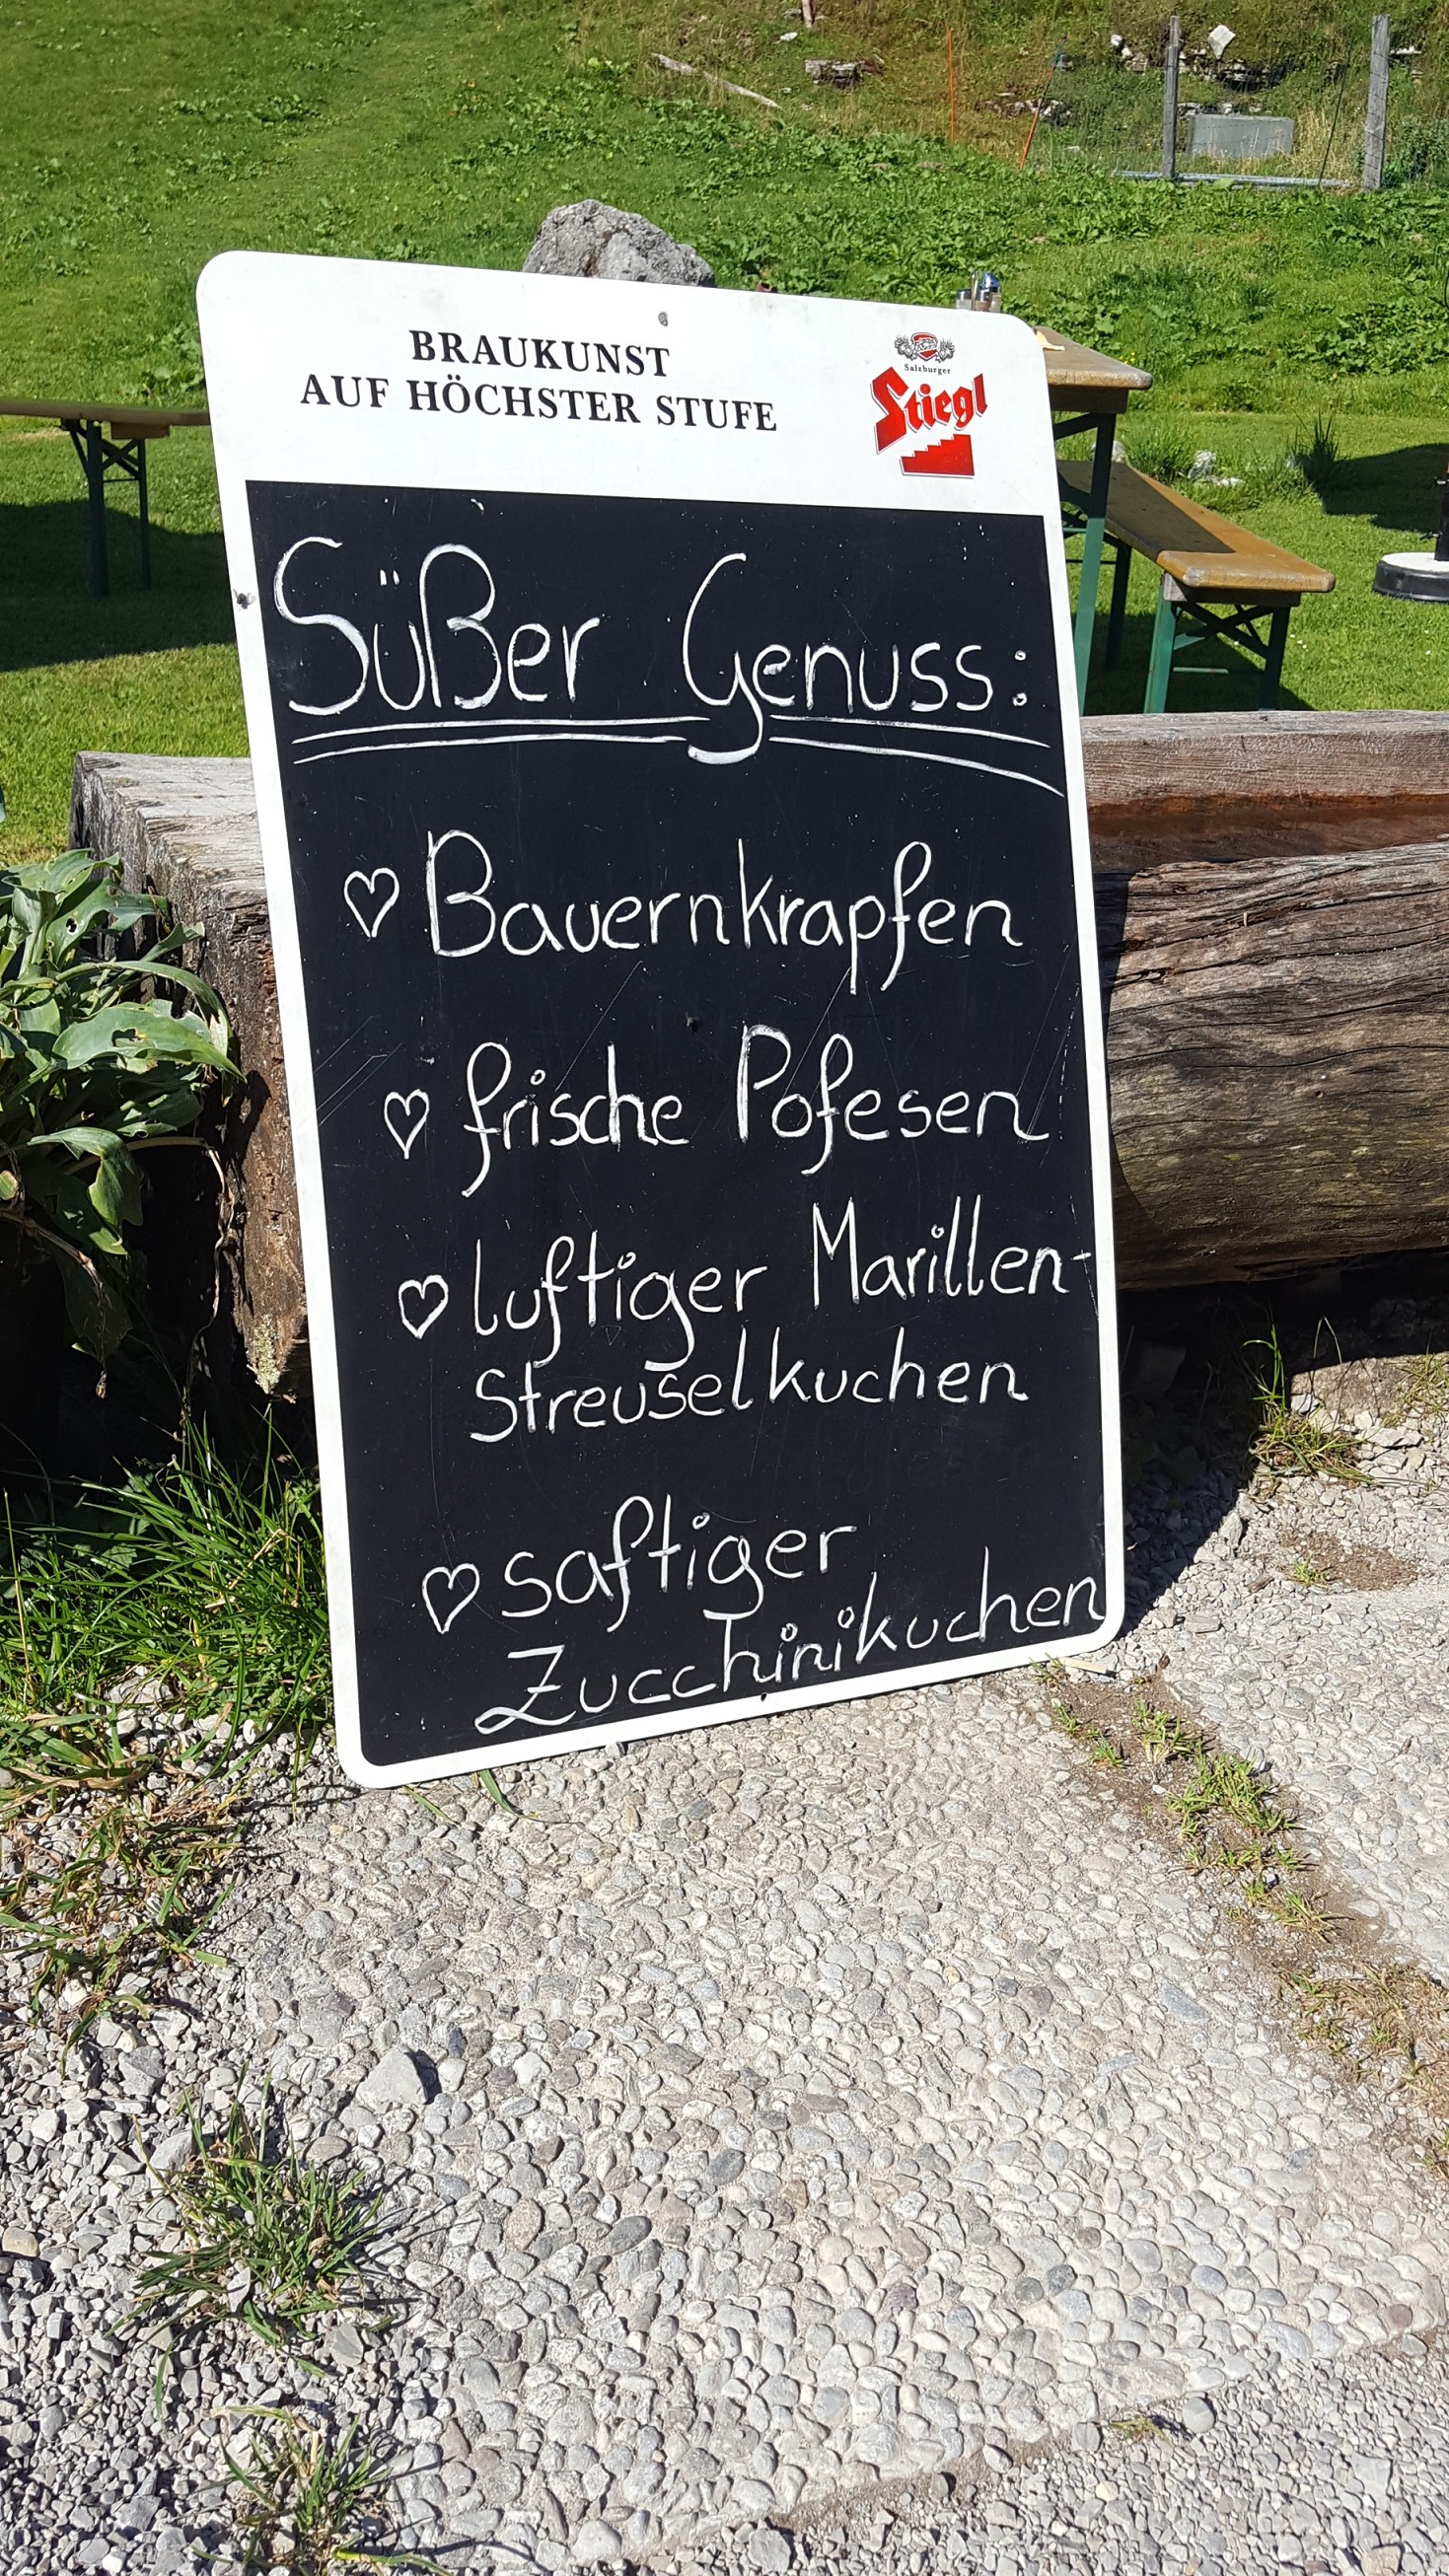 BRAUKUNST
AUF HÖCHSTER STUFE
Salzburger
Stiegl
Süßer Genuss:
♡ Bauernkrapfen
♡ frische Pofesen
♡ luftiger Marillen-
Streuselkuchen
♡ saftiger
Zucchinikuchen